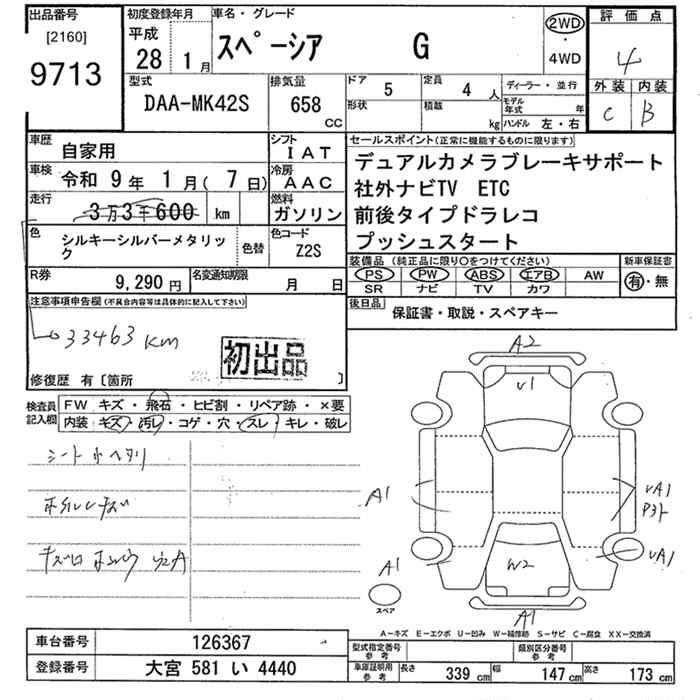 出品番号 初度登録年月 車名・グレード 評価点
[2160] 平成
9713 28 1月 スペーシア G 2WD・4WD 4
型式 排気量 ドア 5 定員 4人 ディーラー・並行 外装 内装
DAA-MK42S 658 CC 形状 積載 kg モデル年式 年 C B
ハンドル 左・右
車歴 自家用 シフト IAT セールスポイント(正常に機能するものに限ります)
車検 令和 9年 1月(7日) 冷房 AAC デュアルカメラブレーキサポート
社外ナビTV ETC
走行 3万3千600 km 燃料 ガソリン 前後タイプドラレコ
色 シルキーシルバーメタリック 色替 色コード Z2S プッシュスタート
装備品(純正品に限り○をつけてください) 新車保証書
R券 9,290円 名変通知期限 月 日 PS PW ABS エアB AW 有・無
SR ナビ TV カワ
注意事項申告欄(不具合内容等は具体的に記入して下さい) 後日品 保証書・取説・スペアキー
33463 km
初出品
修復歴 有〔箇所 〕
検査員記入欄 FW キズ・飛石・ヒビ割・リペア跡・×要
内装 キズ・汚レ・コゲ・穴・スレ・キレ・破レ
シート
A2
U1
A1
UA1
A1
UA1
W2
スペア
A1
A-キズ E-エクボ U-凹み W-補修跡 S-サビ C-腐食 XX-交換済
車台番号 126367 型式指定番号 参考 類別区分番号 参考
登録番号 大宮 581 い 4440 車庫証明用 参考 長さ 339 cm 幅 147 cm 高さ 173 cm